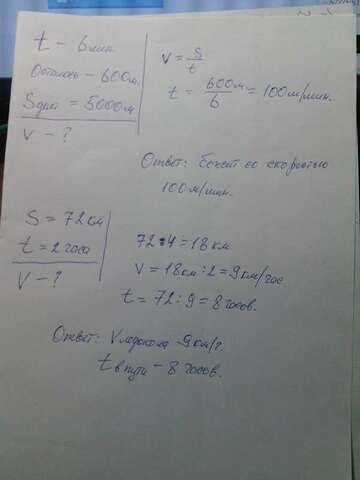 t - 6 мин.
Осталось - 600м.
Sдист = 5000м
V - ?
V = S/t
t = 600м/6 = 100м/мин.
Ответ: Бежит со скоростью
100м/мин.
S = 72 км
t = 2 часа
V - ?
72:4 = 18 км
V = 18км : 2 = 9 км/час
t = 72 : 9 = 8 часов.
Ответ: Vледокола - 9км/ч.
t в пути - 8 часов.